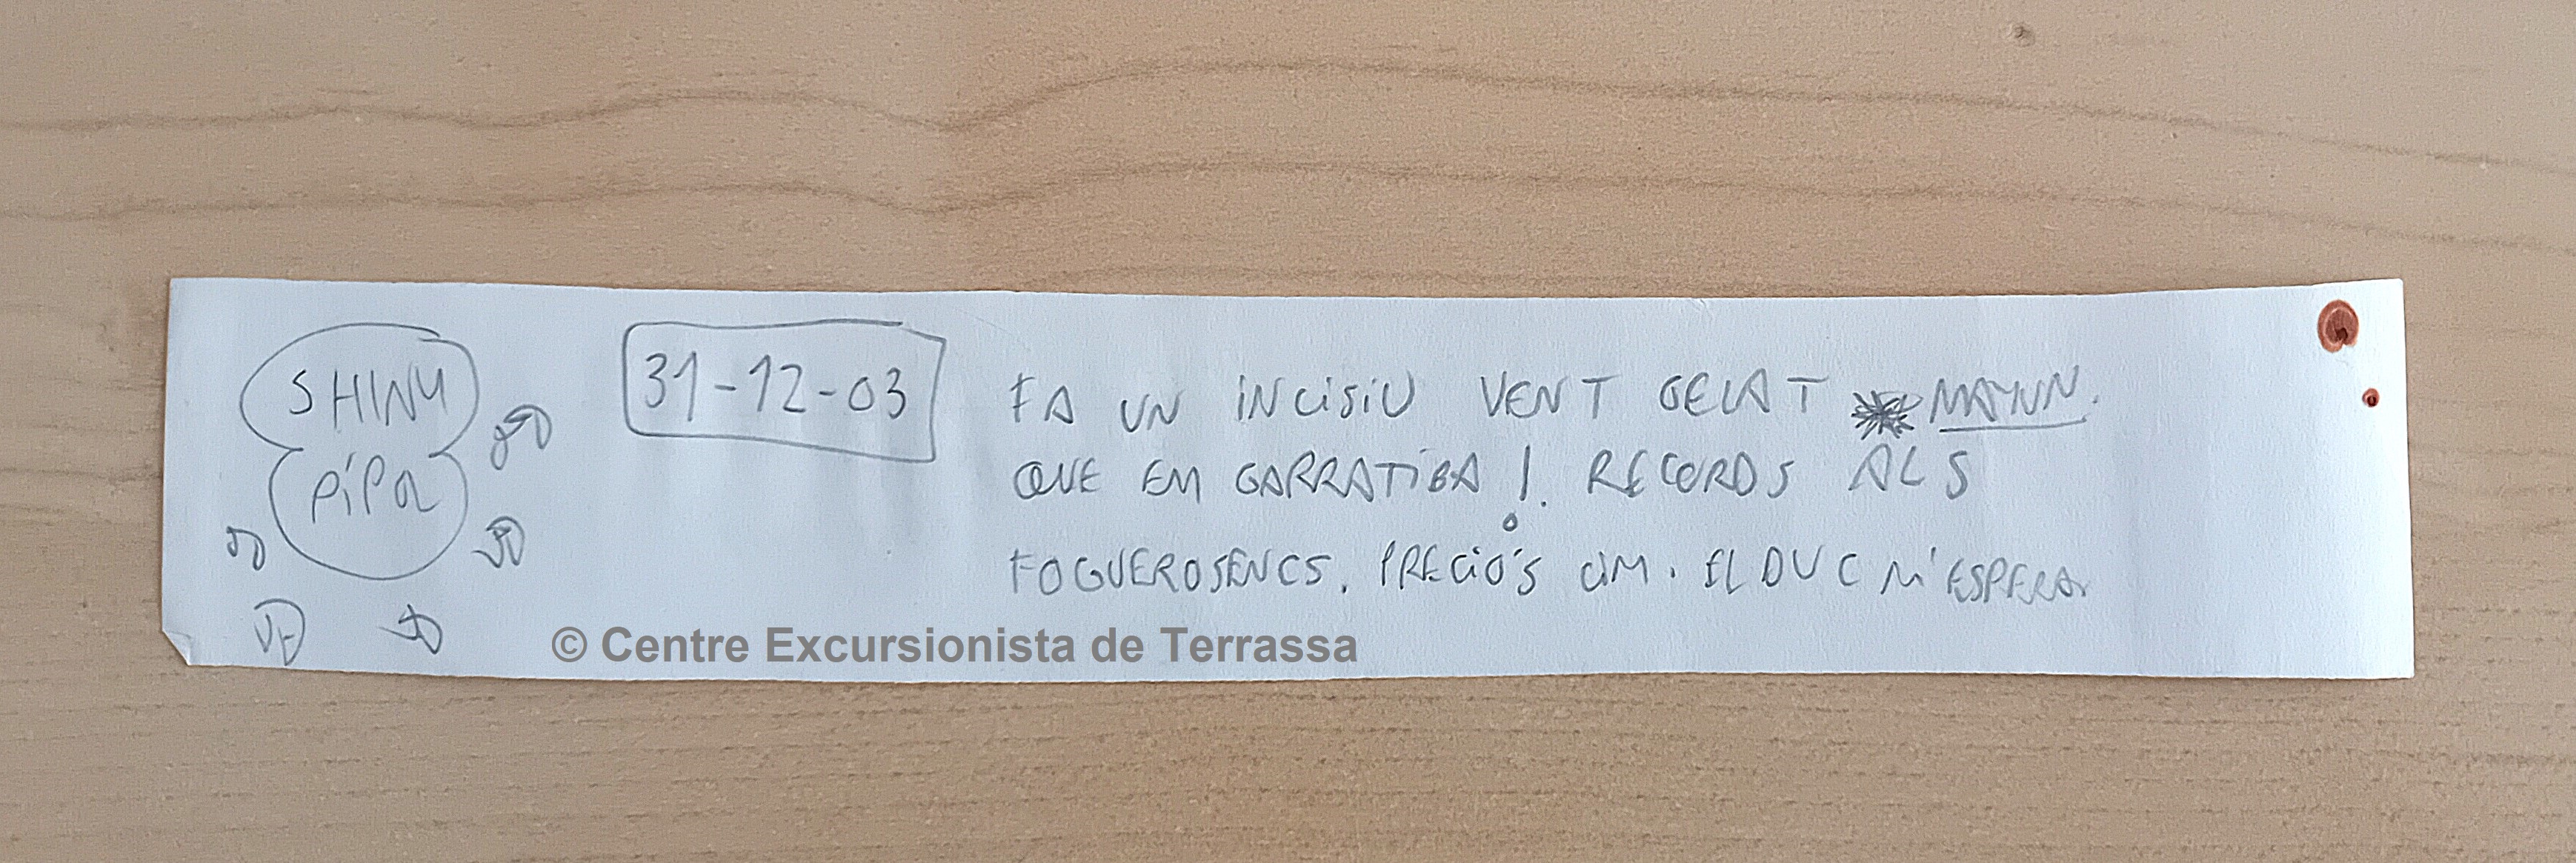 SHINY
PÍPOL
31-12-03
FA UN INCISIU VENT GELAT
QUE EM GARRATIBA! RECORDS ALS
FOGUEROSENCS. PRECIÓS CIM. EL DUC M'ESPERA
© Centre Excursionista de Terrassa